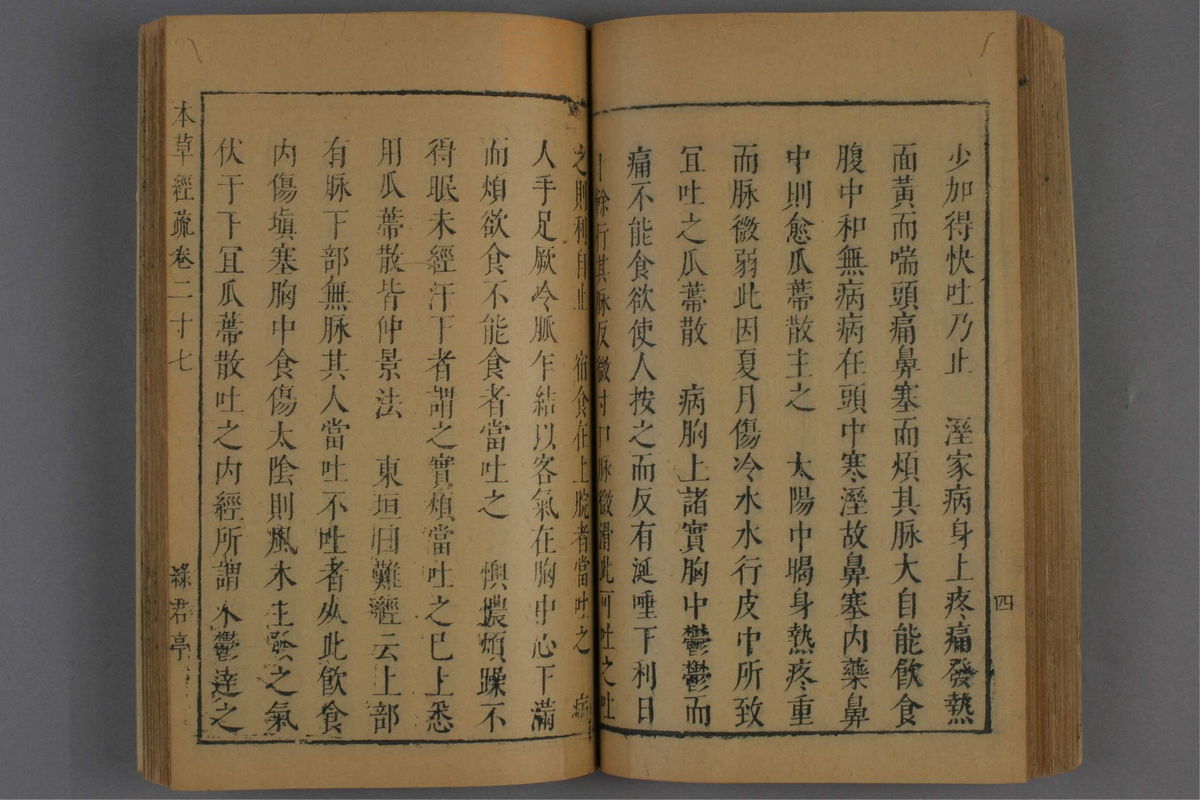 少加得快吐乃止　溼家病身上疼痛發熱
面黃而喘頭痛鼻塞而煩其脉大自能飲食
腹中和無病病在頭中寒溼故鼻塞內藥鼻
中則愈瓜蔕散主之　太陽中暍身熱疼重
而脉微弱此因夏月傷冷水水行皮中所致
冝吐之瓜蔕散　病胸上諸實胸中鬱鬱而
痛不能食欲使人按之而反有涎唾下利日
十餘行其脉反微寸口脉微滑此可吐之吐
之則利自止　宿食在上脘者當吐之　病
人手足厥冷脈乍結以客氣在胸中心下滿
而煩欲食不能食者當吐之　懊憹煩躁不
得眠未經汗下者謂之實煩當吐之已上悉
用瓜蔕散皆仲景法　東垣曰難經云上部
有脉下部無脉其人當吐不吐者死此飲食
內傷塡塞胸中食傷太陰則風木生發之氣
伏于下冝瓜蔕散吐之內經所謂木鬱達之
本草經疏卷二十七
綠君亭
四